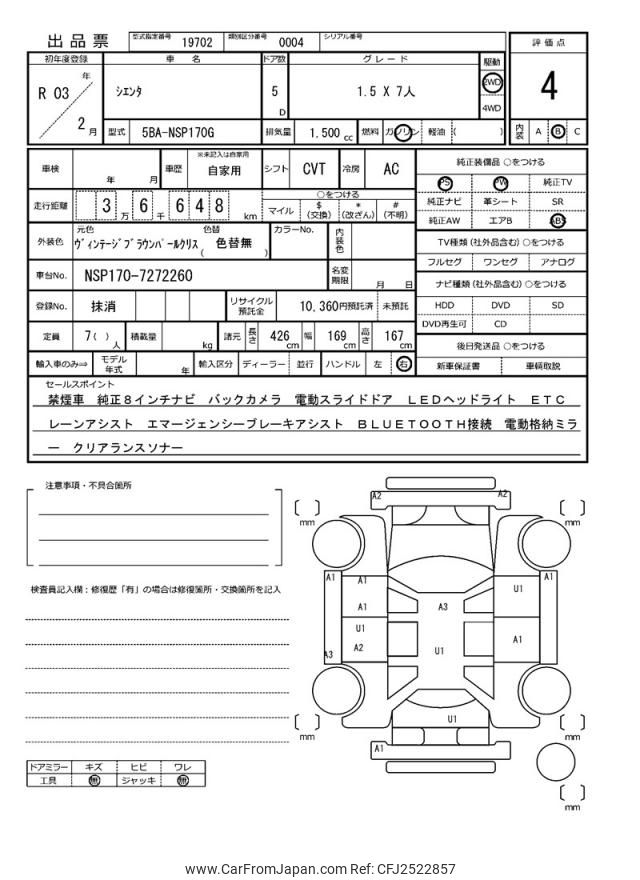 出品票 型式指定番号 19702 類別区分番号 0004 シリアル番号
初年度登録 車名 ドア数 グレード 駆動 評価点
R 03 年 2 月 シエンタ 5 D 1.5 X 7人 2WD 4WD 4
型式 5BA-NSP170G 排気量 1.500 cc 燃料 ガソリン 軽油 ( ) 内装 A B C
車検 年 月 車歴 ※未記入は自家用 自家用 シフト CVT 冷房 AC 純正装備品 ○をつける
PS PW 純正TV
走行距離 3 万 6 千 6 4 8 km ○をつける 純正ナビ 革シート SR
マイル $ (交換) * (改ざん) # (不明) 純正AW エアB ABS
外装色 元色 ヴィンテージブラウンパールクリス 色替 ( 色替無 ) カラーNo. 内装色 TV種類 (社外品含む) ○をつける
フルセグ ワンセグ アナログ
車台No. NSP170-7272260 名変期限 月 日 ナビ種類 (社外品含む) ○をつける
登録No. 抹消 リサイクル預託金 10,360円預託済 未預託 HDD DVD SD
DVD再生可 CD
定員 7( ) 人 積載量 kg 諸元 長さ 426 cm 幅 169 cm 高さ 167 cm 後日発送品 ○をつける
輸入車のみ⇒ モデル年式 年 輸入区分 ディーラー 並行 ハンドル 左 右 新車保証書 車輌取説
セールスポイント
禁煙車 純正8インチナビ バックカメラ 電動スライドドア LEDヘッドライト ETC
レーンアシスト エマージェンシーブレーキアシスト BLUETOOTH接続 電動格納ミラ
ー クリアランスソナー
注意事項・不具合箇所
検査員記入欄:修復歴「有」の場合は修復箇所・交換箇所を記入
A2 A2
mm mm
A1 A1 U1 A1
A1 A3
U1 A1
A2 U1
A3
U1
mm mm
A1
mm
ドアミラー キズ ヒビ ワレ
工具 無 ジャッキ 無
www.CarFromJapan.com Ref: CFJ2522857